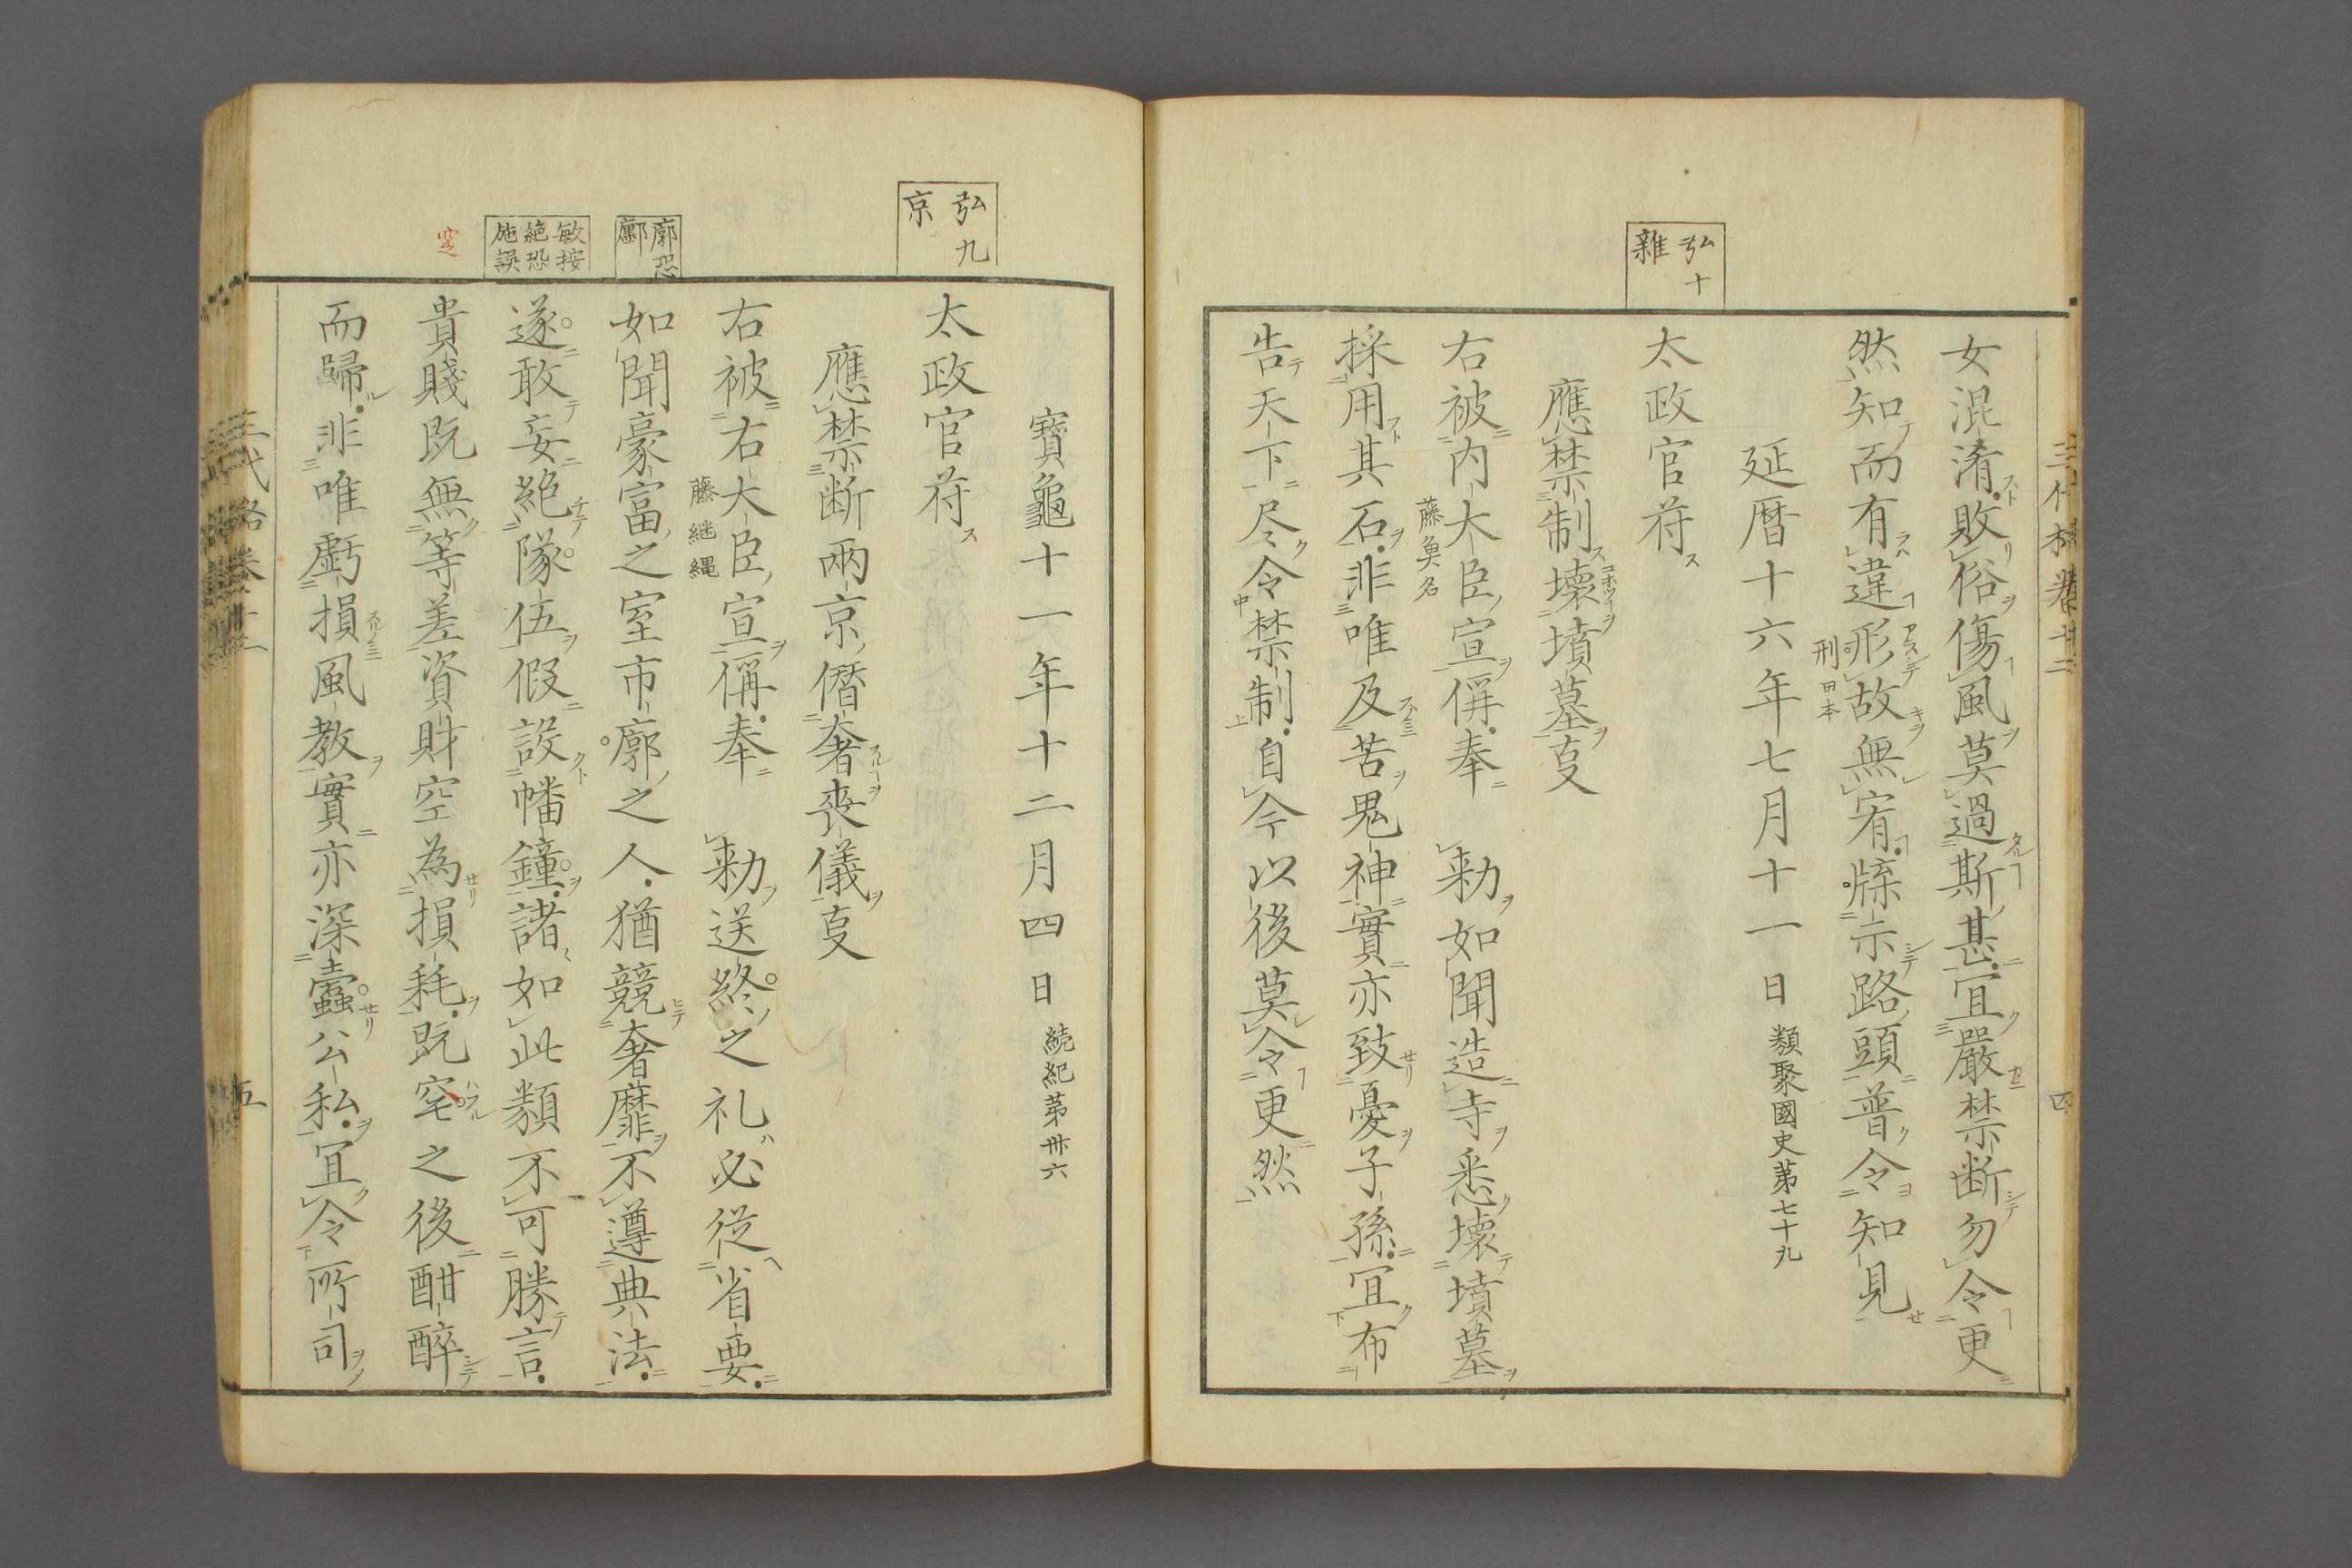 弘十
雜
女混淆敗俗傷風莫過斯甚宜嚴禁断勿令更
然知而有違形故無宥牓示路頭普令知見
刑田本
延暦十六年七月十一日 類聚國史第七十九
太政官符
應禁制壊墳墓㕝
右被内大臣宣偁奉　勅如聞造寺悉壊墳墓
藤魚名
採用其石非唯及苦鬼神實亦致憂子孫宜布
告天下尽令禁制自今以後莫令更然
寶龜十一年十二月四日 続紀第卅六
弘九
京
太政官符
應禁断兩京僭奢喪儀㕝
右被右大臣宣偁奉　勅送終之礼必従省要
藤継縄
廓恐
鄽
如聞豪富之室市廓之人猶競奢靡不遵典法
敏按
絶恐
施誤
遂敢妄絶隊伍假設幡鐘諸如此類不可勝言
貴賤既無等差資財空為損耗既窆之後酣醉
窆
而歸非唯虧損風教實亦深蠹公私宜令所司
五